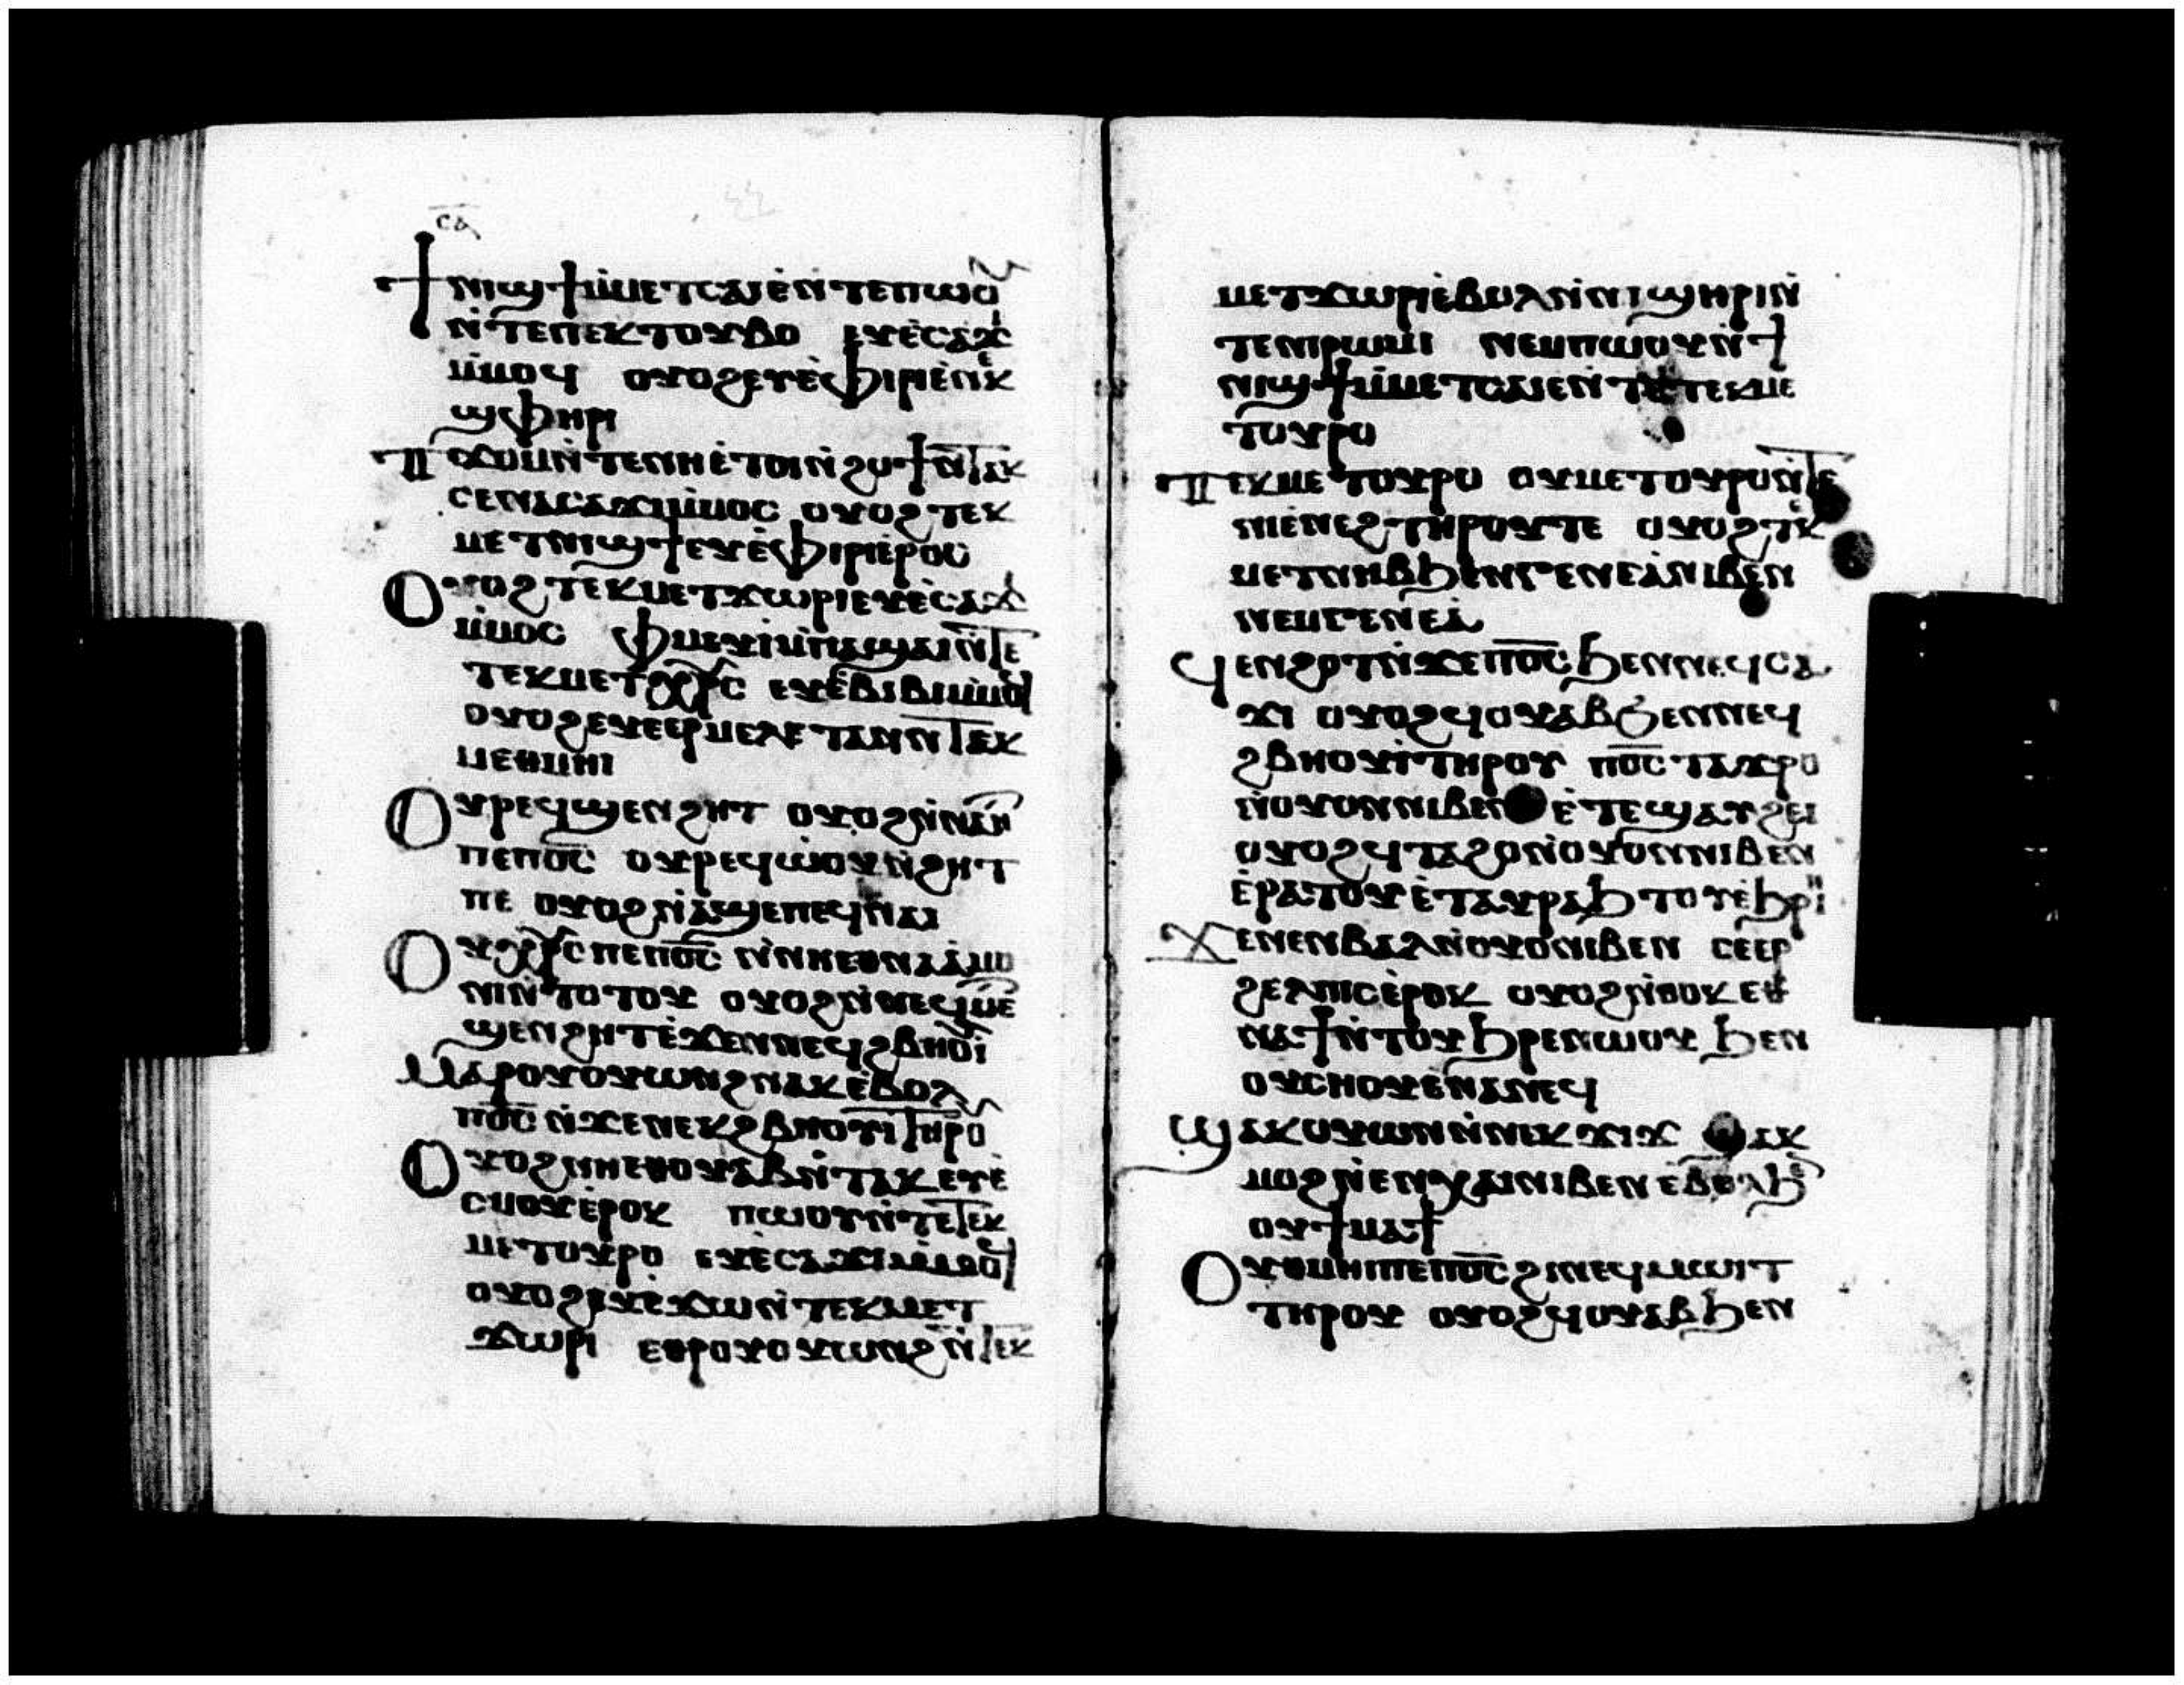 ⲥⲁ
ϯⲛⲓϣϯⲙ̇ⲙⲉⲧⲥⲁⲓⲉ̀ⲛ̀ⲧⲉⲡⲱⲟⲩ
ⲛ̀ⲧⲉⲡⲉⲕⲧⲟⲩⲃⲟ ⲉⲩⲉ̀ⲥⲁϫⲓ
ⲙ̇ⲙⲟϥ ⲟⲩⲟϩⲉⲩⲉ̀ⲫⲓⲣⲓⲉ̀ⲛⲉⲕ
ϣⲫⲏⲣⲓ
Ⲡϫⲟⲙⲛ̀ⲧⲉⲛⲏⲉ̀ⲧⲟⲓⲛ̀ϩⲟϯⲛ̀ⲧⲁⲕ
ⲥⲉⲛⲁⲥⲁϫⲓⲙ̇ⲙⲟⲥ ⲟⲩⲟϩⲧⲉⲕ
ⲙⲉⲧⲛⲓϣϯⲉⲩⲉ̀ⲫⲓⲣⲓⲉ̀ⲣⲟⲥ
Ⲟⲩⲟϩⲧⲉⲕⲙⲉⲧϫⲱⲣⲓⲉⲩⲉ̀ⲥⲁϫⲓ
ⲙ̇ⲙⲟⲥ ⲫⲙⲉⲩⲓ̀ⲙ̀ⲡⲁϣⲁⲓⲛ̀ⲧⲉ
ⲧⲉⲕⲙⲉⲧⲭⲣⲥ ⲉⲩⲉ̀ⲃⲉⲃⲓⲙ̇ⲙⲟϥ
ⲟⲩⲟϩⲉⲩⲉⲉⲣⲙⲉⲗⲉⲧⲁⲛⲛ̀ⲧⲉⲕ
ⲙⲉⲑⲙⲏⲓ
Ⲟⲩⲣⲉϥϣⲉⲛϩⲏⲧ ⲟⲩⲟϩⲛ̀ⲛⲁⲏⲧ
ⲡⲉⲡⲟ̅ⲥ̅ ⲟⲩⲣⲉϥⲱ̀ⲟⲩⲛ̀ϩⲏⲧ
ⲡⲉ ⲟⲩⲟϩⲛ̀ⲁϣⲉⲡⲉϥⲛⲁⲓ
Ⲟⲩⲭⲣⲥⲡⲉⲡⲟ̅ⲥ̅ ⲛ̀ⲛⲏⲉⲑⲛⲁⲁ̀ⲙⲟ
ⲛⲓⲛ̀ⲧⲟⲧⲟⲩ ⲟⲩⲟϩⲛ̀ⲛⲉϥⲙⲉⲧ
ϣⲉⲛϩⲏⲧⲉ̀ϫⲉⲛⲛⲉϥϩⲃⲏⲟⲩⲓ̀
Ⲙⲁⲣⲟⲩⲟⲩⲱⲛϩⲛⲁⲕⲉ̀ⲃⲟⲗ
ⲡⲟ̅ⲥ̅ ⲛ̀ϫⲉⲛⲉⲕϩⲃⲏⲟⲩⲓⲧⲏⲣⲟⲩ
Ⲟⲩⲟϩⲛⲏⲉⲑⲟⲩⲁⲃⲛ̀ⲧⲁⲕ ⲉⲩⲉ̀
ⲥⲙⲟⲩⲉ̀ⲣⲟⲕ ⲡⲱⲟⲩⲛ̀ⲧⲉⲧⲉⲕ
ⲙⲉⲧⲟⲩⲣⲟ ⲉⲩⲉ̀ⲥⲁϫⲓⲙ̇ⲙⲟϥ
ⲟⲩⲟϩⲉⲩⲉ̀ϫⲱⲛ̀ⲧⲉⲕⲙⲉⲧ
ϫⲱⲣⲓ ⲉⲑⲣⲟⲩⲟⲩⲱⲛϩⲛ̀ⲧⲉⲕ
ⲙⲉⲧϫⲱⲣⲓⲉ̀ⲃⲟⲗⲛ̀ⲛⲓϣⲏⲣⲓⲛ̀
ⲧⲉⲛⲓⲣⲱⲙⲓ ⲛⲉⲙⲡⲱⲟⲩⲛ̀ϯ
ⲛⲓϣϯⲙ̇ⲙⲉⲧⲥⲁⲓⲉⲛ̀ⲧⲉⲧⲉⲕⲙⲉ
ⲧⲟⲩⲣⲟ
Ⲧⲉⲕⲙⲉⲧⲟⲩⲣⲟ ⲟⲩⲙⲉⲧⲟⲩⲣⲟⲛ̀ⲧⲉ
ⲛⲓⲉ̀ⲛⲉϩⲧⲏⲣⲟⲩⲧⲉ ⲟⲩⲟϩⲧⲉⲕ
ⲙⲉⲧⲛⲏⲃϧⲉⲛⲅⲉⲛⲉⲁ̀ⲛⲓⲃⲉⲛ
ⲛⲉⲙⲅⲉⲛⲉⲁ̀
ϥⲉⲛϩⲟⲧⲛ̀ϫⲉⲡⲟ̅ⲥ̅ϧⲉⲛⲛⲉϥⲥⲁ
ϫⲓ ⲟⲩⲟϩϥⲟⲩⲁⲃϧⲉⲛⲛⲉϥ
ϩⲃⲏⲟⲩⲓ̀ⲧⲏⲣⲟⲩ ⲡⲟ̅ⲥ̅ⲧⲁϫⲣⲟ
ⲛ̀ⲟⲩⲟⲛⲛⲓⲃⲉⲛ ⲉ̀ⲧⲉϣⲁⲩϩⲉⲓ
ⲟⲩⲟϩϥⲧⲁϩⲟⲛ̀ⲟⲩⲟⲛⲛⲓⲃⲉⲛ
ⲉ̀ⲣⲁⲧⲟⲩⲉ̀ⲧⲁⲩⲣⲁϧⲧⲟⲩⲉ̀ϧⲣⲏⲓ
Ϫⲉⲛⲉⲛⲃⲁⲗⲛ̀ⲟⲩⲟⲛⲓⲃⲉⲛ ⲥⲉⲉⲣ
ϩⲉⲗⲡⲓⲥⲉ̀ⲣⲟⲕ ⲟⲩⲟϩⲛ̀ⲑⲟⲕⲉⲑ
ⲛⲁϯⲛ̀ⲧⲟⲩϧⲣⲉⲛⲱⲟⲩ ϧⲉⲛ
ⲟⲩⲥⲏⲟⲩⲉ̀ⲛⲁⲛⲉϥ
Ϣⲁⲕⲟⲩⲱⲛⲛ̀ⲛⲉⲕϫⲓϫ ϣⲁⲕ
ⲙⲟϩⲛ̀ⲉⲛⲭⲁⲓⲛⲓⲃⲉⲛⲉ̀ⲃⲟⲗϧⲉⲛ
ⲟⲩϯⲙⲁϯ
Ⲟⲩⲑⲙⲏⲓⲡⲉⲡⲟ̅ⲥ̅ϩⲓⲛⲉϥⲙⲱⲓⲧ
ⲧⲏⲣⲟⲩ ⲟⲩⲟϩϥⲟⲩⲁⲃϧⲉⲛ